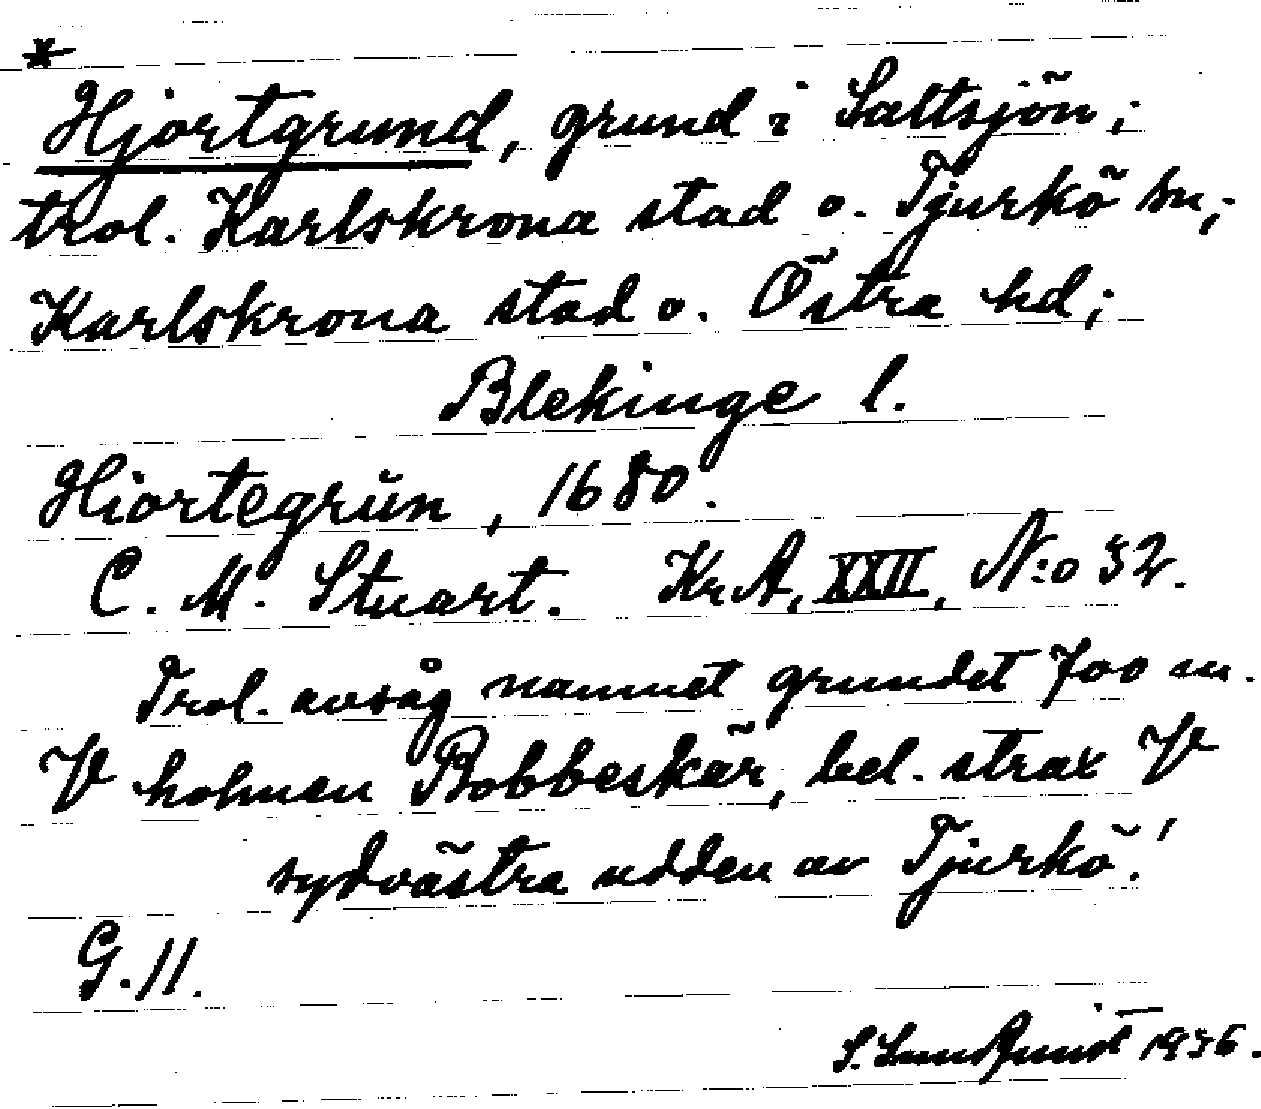 *
Hjortgrund, grund i Saltsjön;
trol. Karlskrona stad o. Tjurkö sn,;
Karlskrona stad o. Östra hd;
Blekinge l.
Hiortegrŭn, 1680.
C. M. Stuart. KrA, XXII, N:o 32.
Trol. avsåg namnet grundet 700 m.
V holmen Bobbeskär, bel. strax V
sydvästra udden av Tjurkö.'
G. 11.
1936.